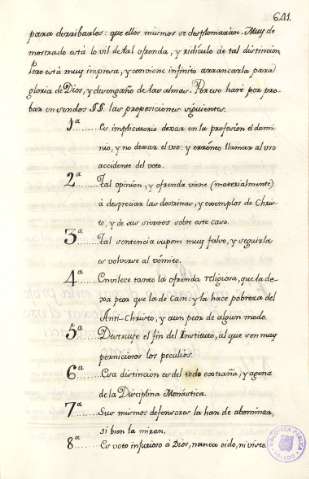 641.
para derribarlas: que ellos mismos se desplomarian. Muy de
mostrado está lo vil de tal ofrenda, y ridículo de tal distincion
Pero está muy impresa, y conviene infinito arrancarla para
gloria de Dios, y desengaño de las almas. Por eso haré por pro-
bar en sendos §§. las proposiciones siguientes.
1ª ...... Es implicatorio dexar en la profesion el domi-
nio, y no dexar el uso: y erróneo llamar al uso
accidente del voto.
2ª ...... Tal opinion, y ofrenda viene (materialmente)
á despreciar las doctrinas, y exemplos de Chris-
to, y de sus siervos sobre este caso.
3ª ...... Tal sentencia supone muy falso, y seguirla
es volverse al vómito.
4ª ...... Envilece tanto la ofrenda religiosa, que la de-
xa peor que la de Cain: y la hace pobreza del
Anti-Christo, y aun peor de algun modo.
5ª ...... Destruye el fin del Instituto, al que son muy
perniciosos los peculios.
6ª ...... Esa distincion es del todo extraña, y agena
de la Disciplina Monástica.
7ª ...... Sus mismos defensores la han de abominar,
si bien la miran.
8ª ...... Es voto injurioso á Dios, nunca oido, ni visto
BIBLIOTECA PUBLICA
TOLEDO